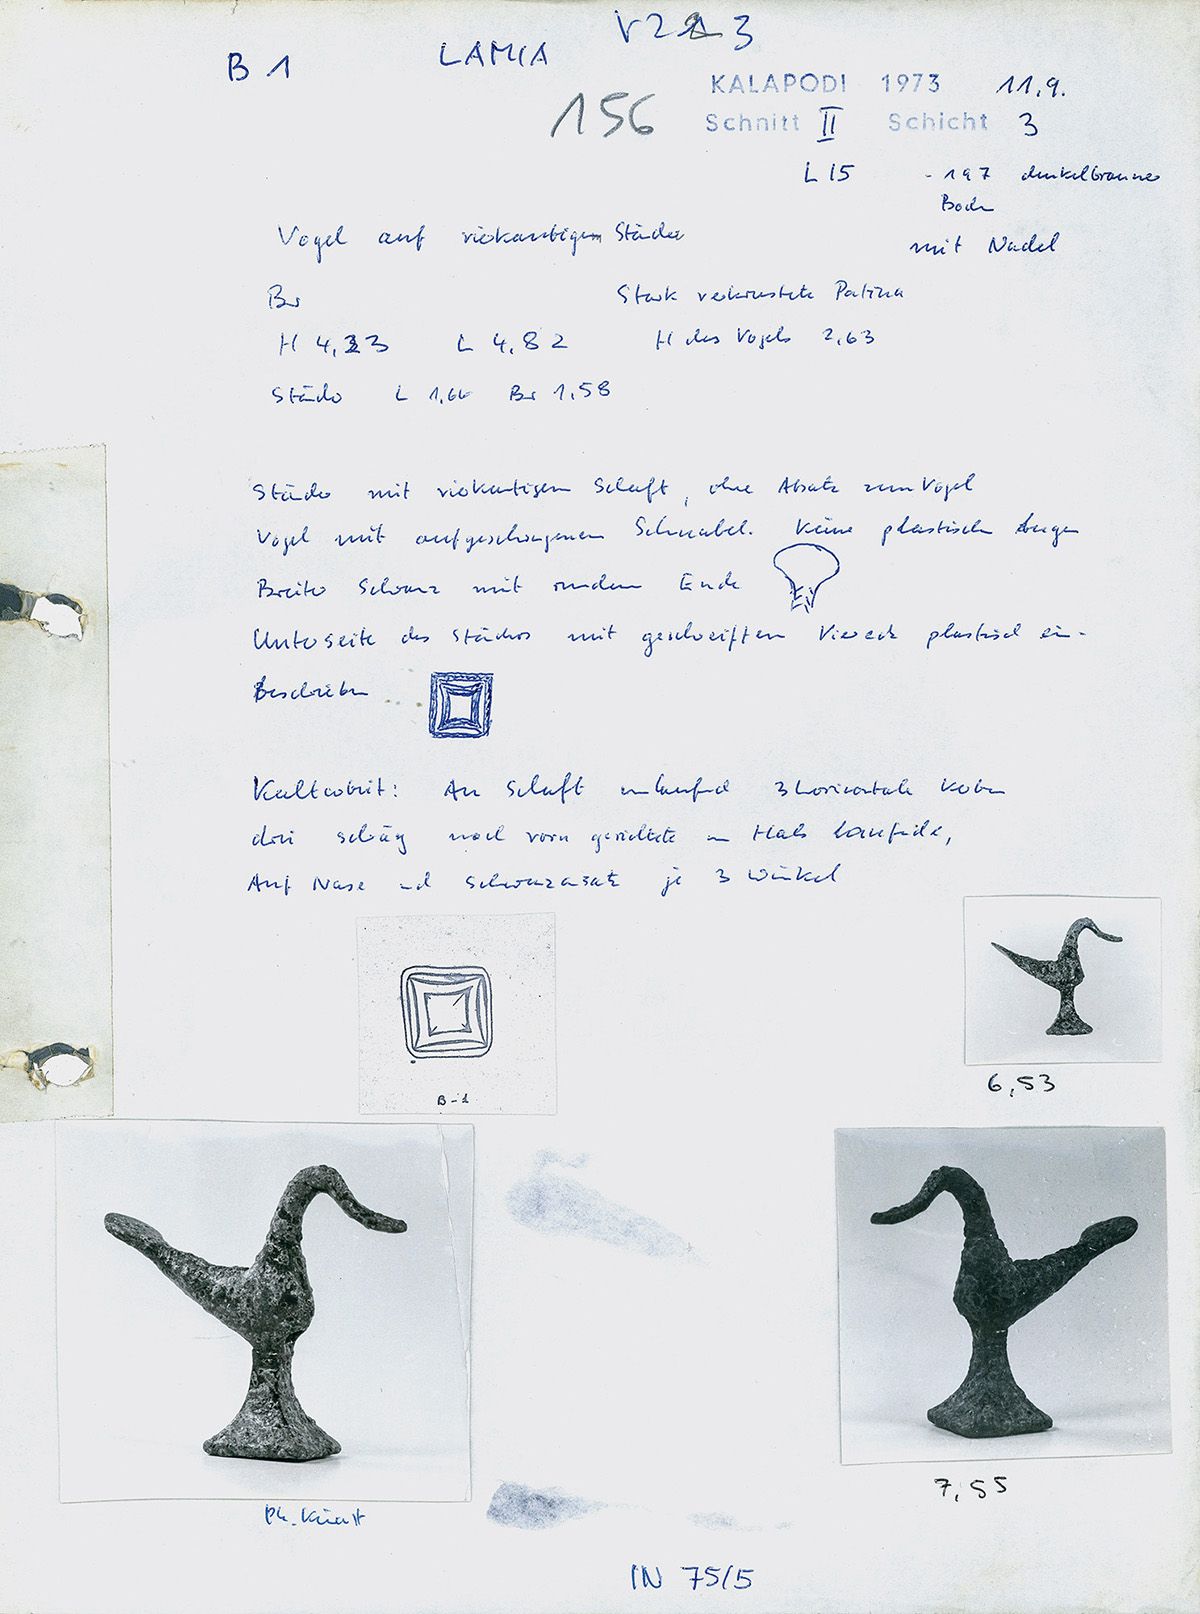 V 2 3
B 1 LAMIA
KALAPODI 1973 11.9.
156
Schnitt II Schicht 3
L 15 - 197 dunkelbrauner
Boden
mit Nadel
Vogel auf vierkantigem Ständer
Br Stark verkrustete Patina
H 4,33 L 4,82 H des Vogels 2,63
Ständer L 1,66 Br 1,58
Ständer mit vierkantigem Schaft, ohne Absatz zum Vogel
Vogel mit aufgeschwungenem Schnabel. Keine plastischen Augen
Breiter Schwanz mit rundem Ende
Unterseite des Ständers mit geschweiftem Viereck plastisch ein-
beschrieben
Kaltarbeit: Am Schaft umlaufend 3 horizontale Kerben
drei schräg nach vorn gerichtete am Hals laufende,
Auf Nase und Schwanzansatz je 3 Winkel
B-1
6,53
7,55
Ph.
IN 75/5